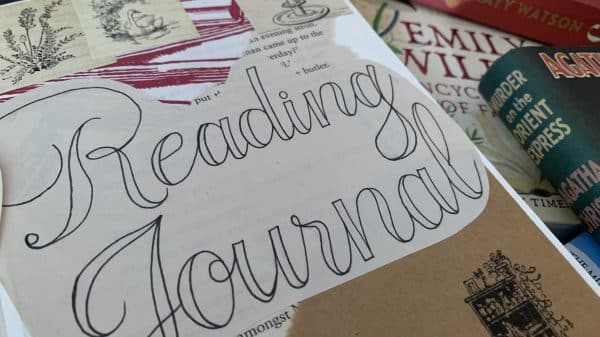 Reading
Journal
evening stroll.
man came up to the
erday?'
butler.
put
amongst
KATY WATSON
EMILY
WIL
NCYC
OF F
TIME
AGAT
MURDER
on the
ORIENT
EXPRESS
AGATHA
THE M